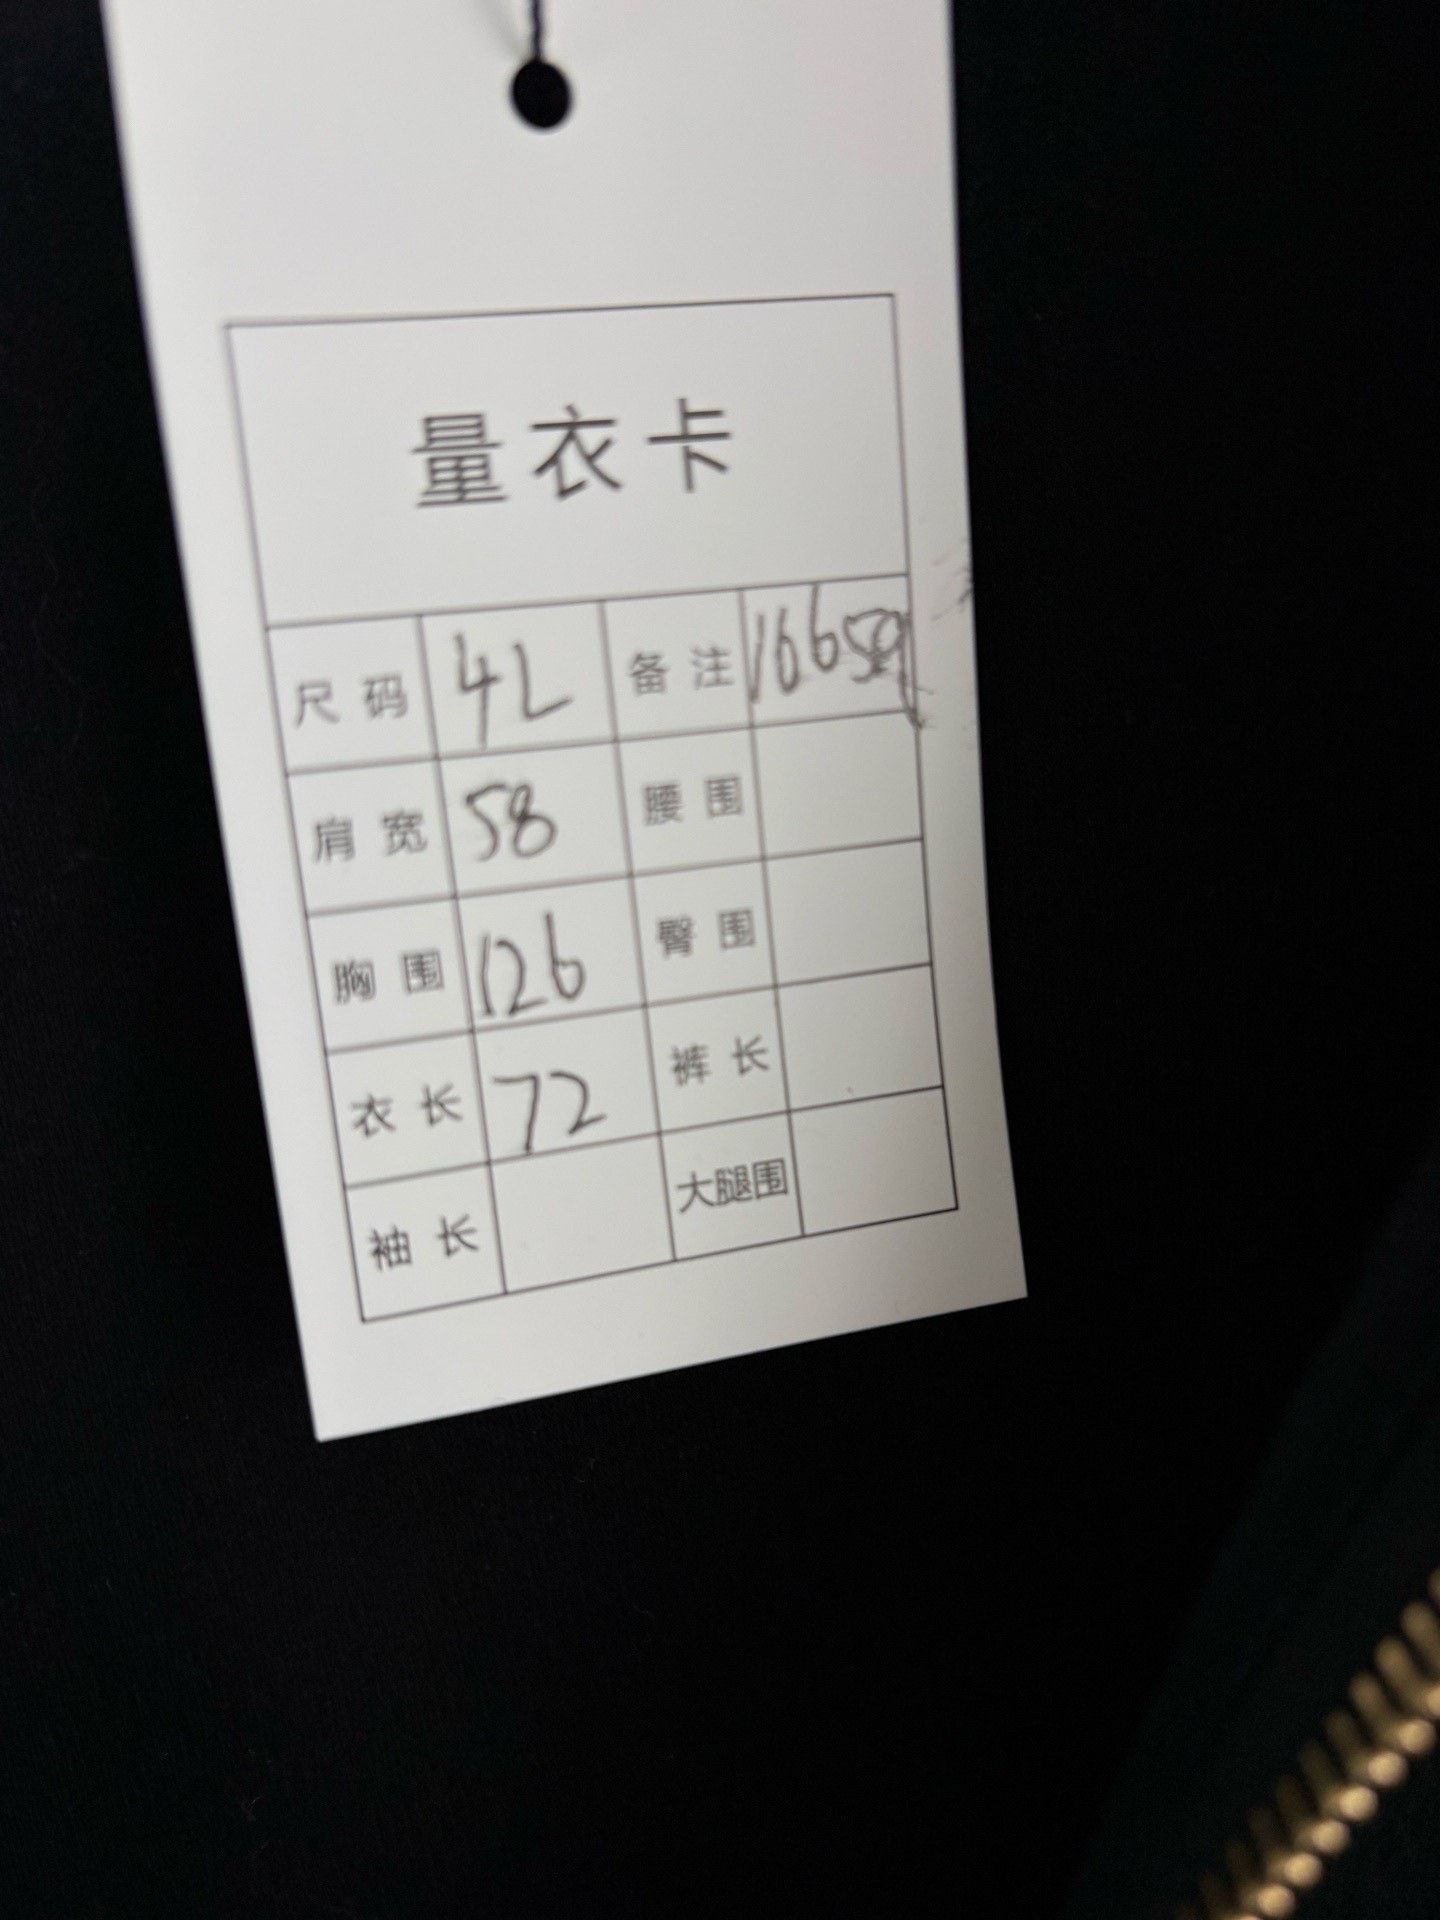 量衣卡
尺码 4L 备注
肩宽 58 腰围
胸围 126 臀围
衣长 72 裤长
袖长 大腿围